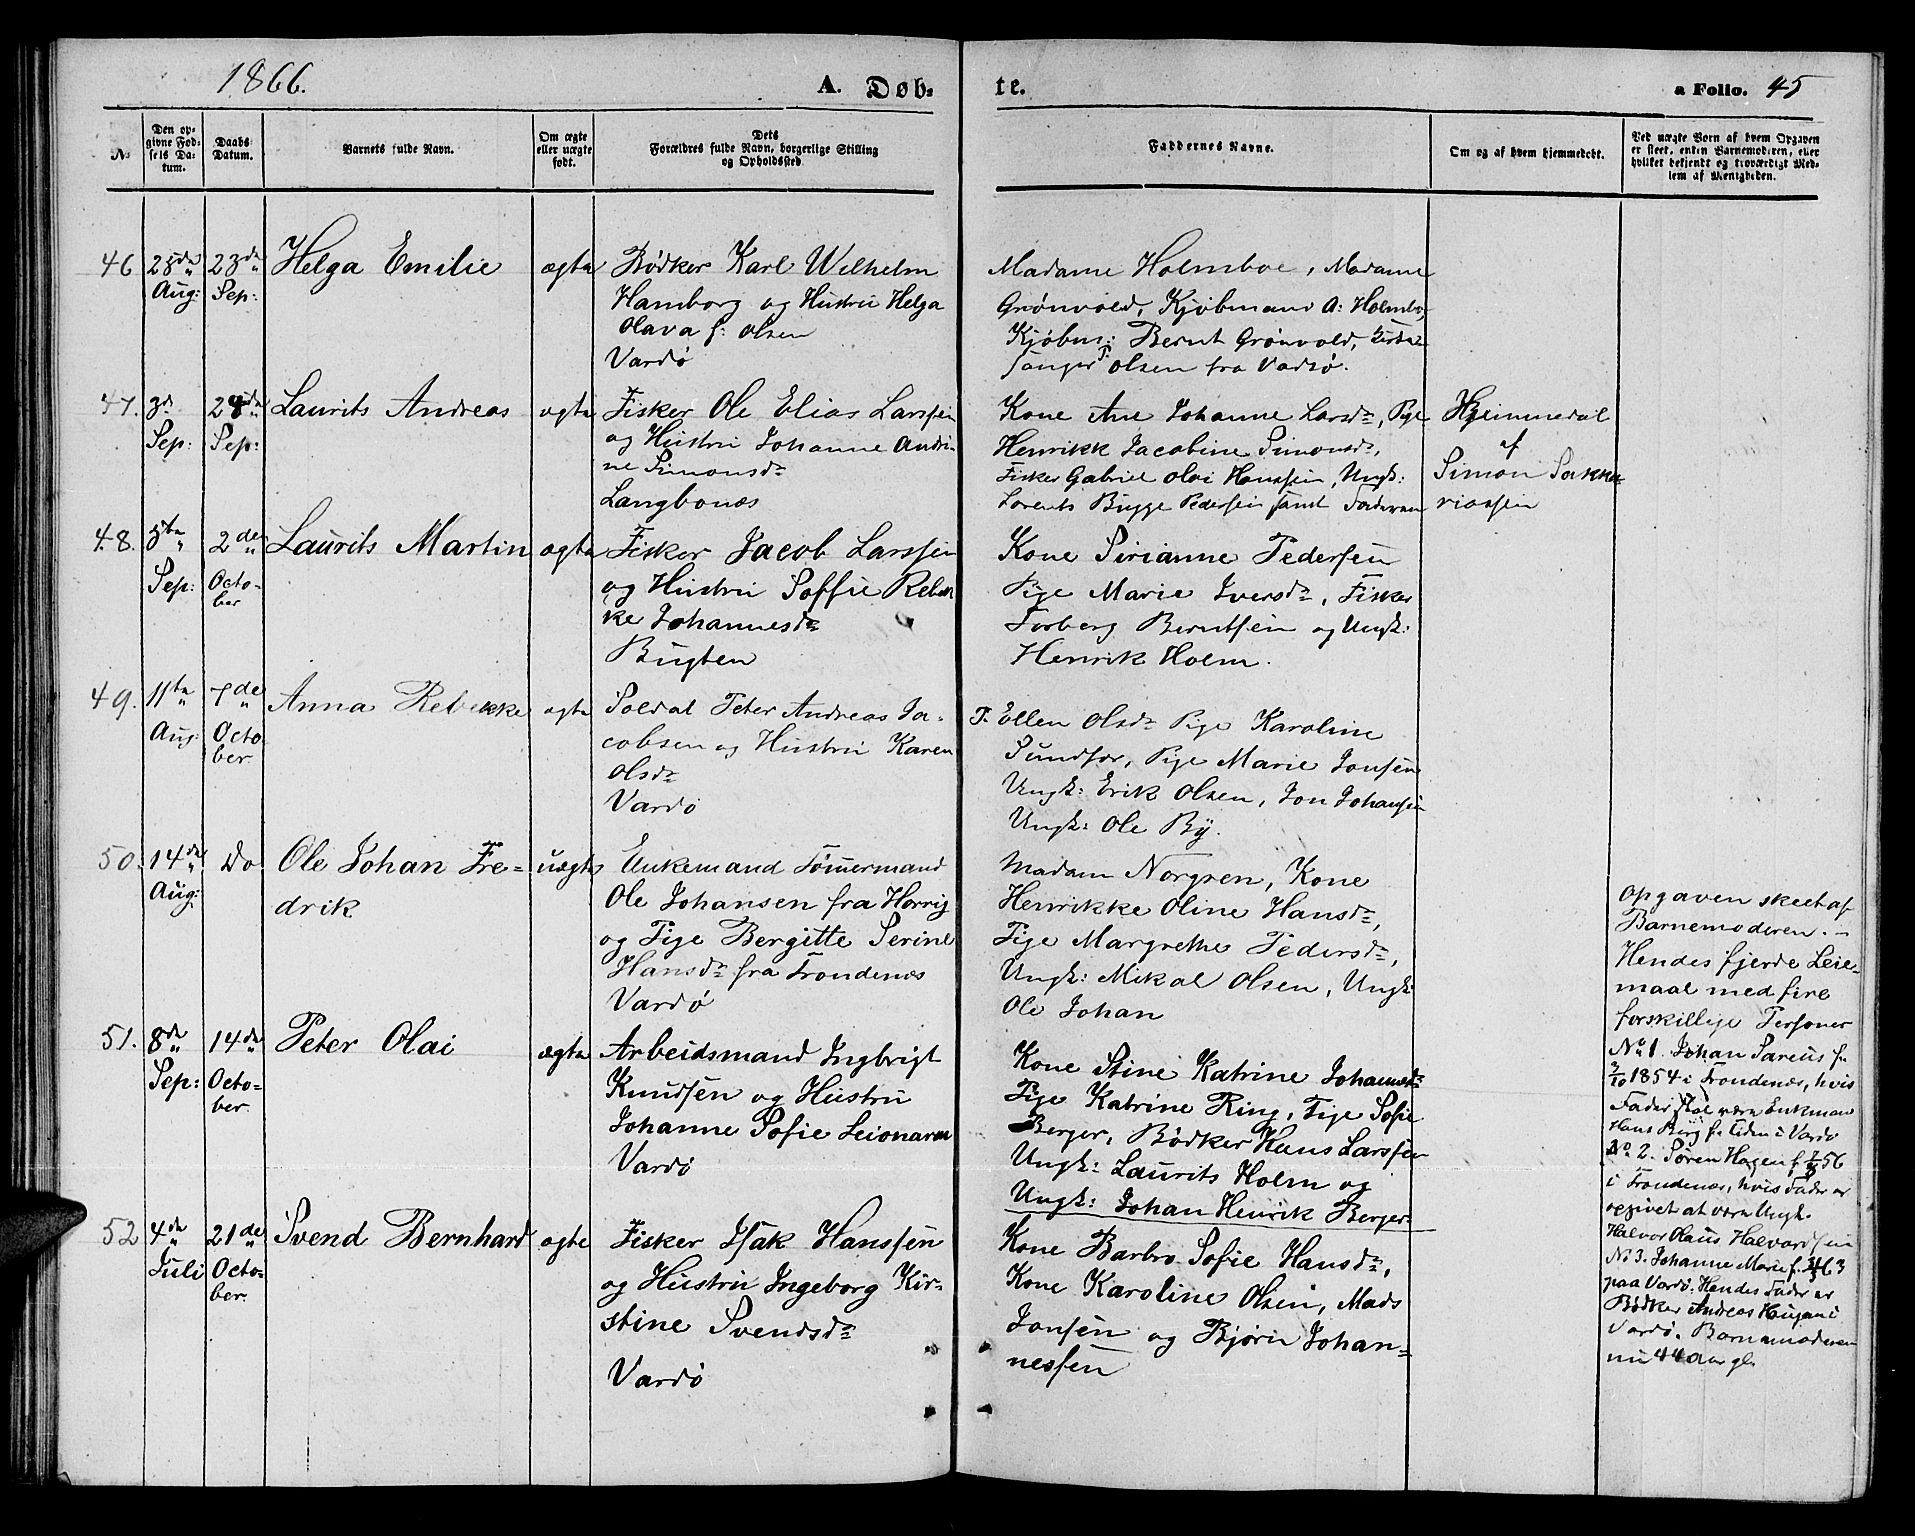 1866.
A. Døb-
te.
a Folio. 45
No
Den op-
givne Fød-
sels Da-
tum.
Daabs
Datum.
Barnets fulde Navn.
Om ægte
eller uægte
født.
Dets
Forældres fulde Navn, borgerlige Stilling
og Opholdssted
Faddernes Navne.
Om og af hvem hjemmedøbt.
Ved uægte Børn af hvem Opgaven
er skeet, enten Barnemoderen, eller
hvilket bekjendt og troværdigt Med-
lem af Menigheden.
46
28de
Aug:
23de
Sep:
Helga Emilie
ægte
Bødker Karl Wilhelm
Hamborg og Hustru Helga
Olava f: Olsen
Vardø
Madame Holmboe, Madame
Grønvold, Kjøbmand A: Holmbo,
Kjøbm: Bernt Grønvold, Kirke
sanger P. Olsen fra Vadsø.
47.
3d
Sep:
24de
Sep:
Laurits Andreas
ægte
Fisker Ole Elias Larssen
og Hustru Johanne Andri-
ne Simonsdr
Langbonæs
Kone Ane Johanne Larsdr, Pige
Henrikk Jacobine Simonsdr,
Fisker Gabriel Olai Hanssen, Ungk:
Lorents Bugge Pedersen samt Faderen
Hjemmedøl
af
Simon Sakka-
riassen
48.
5te
Sep:
2den
Octo-
ber
Laurits Martin
ægte
Fisker Jacob Larssen
og Hustru Soffie Rebek
ke Johannesdr
Bugten
Kone Sirianne Pedersen
Pige Marie Iversdr, Fisker
Torberg Berntsen og Ungk:
Henrik Holm.
49.
11te
Aug:
7de
Octo-
ber
Anna Rebekke
ægte
Soldat Peter Andreas Ja-
cobsen og Hustru Karen
Olsdr
Vardø
P. Ellen Olsdr Pige Karoline
Sundfør, Pige Marie Jonsen
Ungk: Erik Olsen, Jon Johansen
Ungk: Ole By.
50.
14de
Aug:
Do
Ole Johan Fre-
drik
uægte
Enkemand Tømmermand
Ole Johansen fra Horrig
og Pige Bergitte Serine
Hansdr fra Trondenæs
Vardø
Madam Norgren, Kone
Henrikke Oline Hansdr,
Pige Margrethe Pedersdr,
Ungk: Mikal Olsen, Ungk:
Ole Johan
Opgaven skeet af
Barnemoderen. -
Hendes fjerde Leie-
maal med fire
forskillige Personer
No 1. Johan Pareus f.
3/10 1854 i Trondenæs, hvis
Fader skal være Enkman
Hans Berg f. Tiden i Vardø
No 2. Søren Hagen f. 56
i Trondenæs, hvis Fader er
opgivet at være Ungk.
Halvor Olaus Halvardsen
No 3. Johanne Marie f. 63
paa Vardø. Hendes Fader er
Bødker Andreas Haugan i
Vardø. Barnemoderen
nu 44 Aar gl.
51.
8de
Sep:
14de
Octo-
ber.
Peter Olai
ægte
Arbeidsmand Ingbrigt
Knudsen og Hustru
Johanne Sofie Leionaren
Vardø
Kone Stine Katrine Johannesdr
Pige Katrine Ring, Pige Sofie
Berger, Bødker Hans Larssen
Ungk: Laurits Holm og
Ungk: Johan Henrik Berger.
52
4de
Juli
21de
Octo-
ber.
Svend Bernhard
ægte
Fisker Isak Hanssen
og Hustru Ingeborg Kir-
stine Svendsdr
Vardø
Kone Barbro Sofie Hansdr,
Kone Karoline Olsen, Mads
Jonsen og Bjørn Johan-
nessen